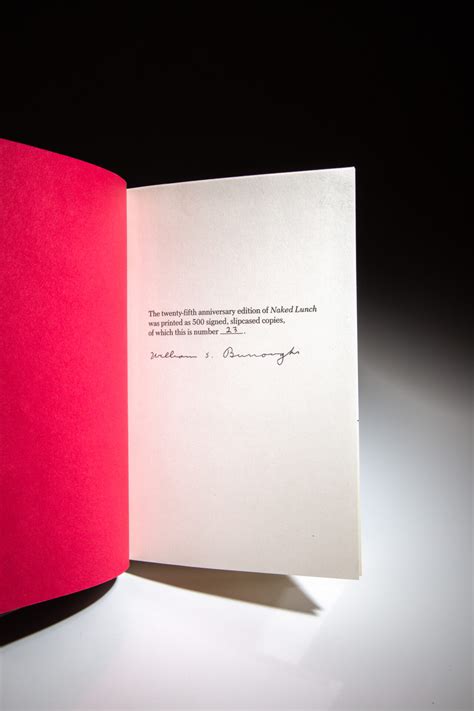 The twenty-fifth anniversary edition of Naked Lunch
was printed as 500 signed, slipcased copies,
of which this is number 23.
William S. Burroughs